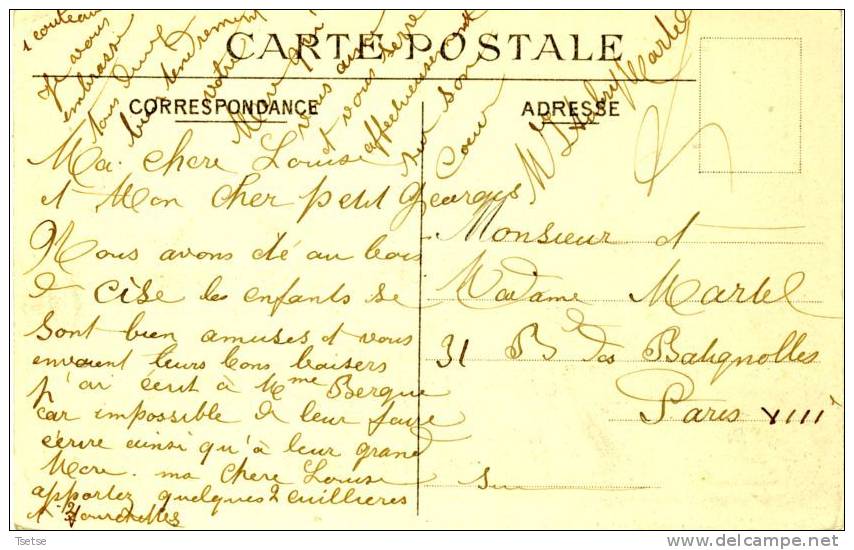 CARTE POSTALE
CORRESPONDANCE
ADRESSE
Ma chere Louise
et Mon cher petit Georges
Nous avons été au bois
de Cise les enfants se
sont bien amusés et vous
envoient leurs bons baisers
j'ai écrit à Mme Bergue
car impossible de leur faire
écrire ainsi qu'à leur grand
Mere. ma chere Louise
apportez quelques 2 cuillieres
et 2 fourchettes
1 couteau
Je vous
embrasse
tous deux
bien tendrement
votre
Mere qui
vous aime
et vous serre
affectueusement
sur son
Coeur
Martel
Monsieur et
Madame Martel
31 Bd des Batignolles
Paris XIIII
Tsetse
www.delcampe.net